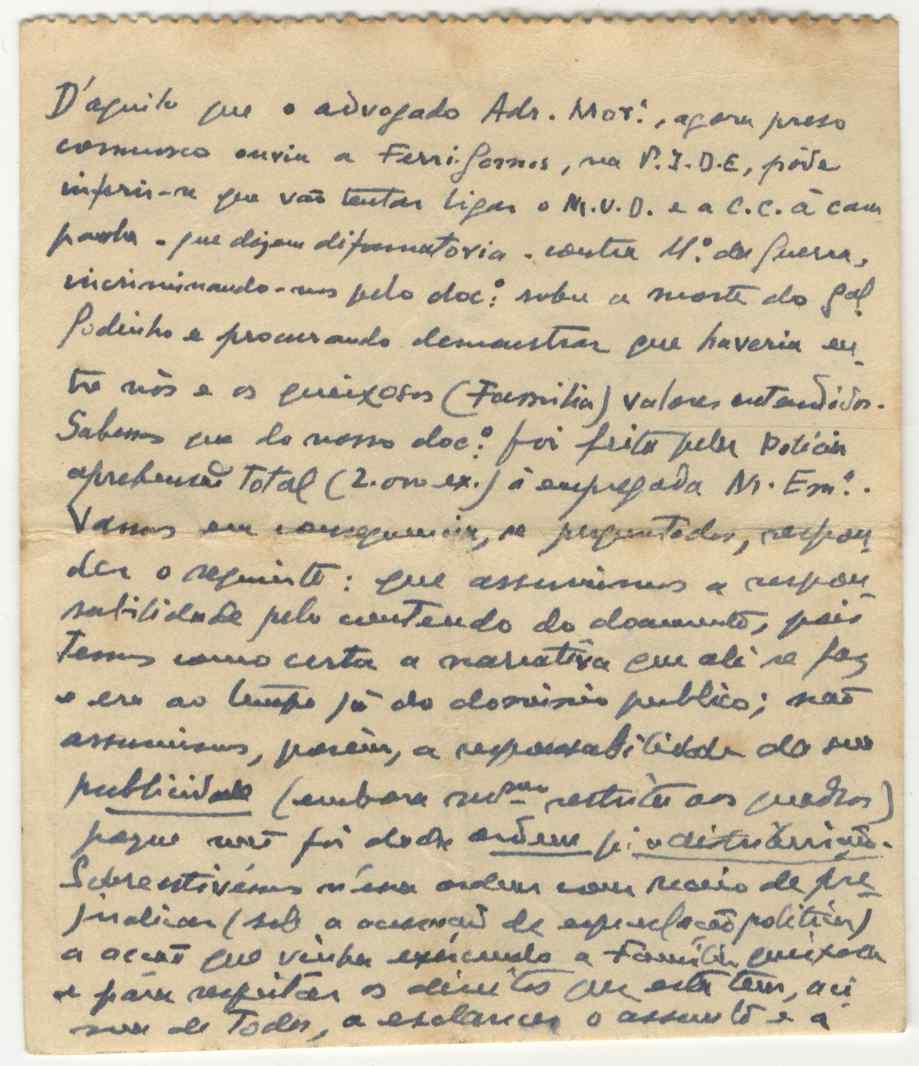 D'aquilo que o advogado Adr. Mor.ª, agora preso
comnosco ouviu a Ferri. Gomes, na P.I.D.E, póde
inferir-se que vão tentar ligar o M.U.D. e a C.C. à cam
panha - que dizem difamatoria - contra M.º da Guerra,
incriminando-nos pelo doc.º sobre a morte do gal
Godinho e procurando demonstrar que haveria en-
tre nós e os queixosos (Familia) valores entendidos.
Sabemos que do nosso doc.º foi feita pela Policia
aprehensão Total (2.000 ex.) á empregada M. Em.ª.
Vamos em consequencia, se perguntados, respon-
der o seguinte: que assumimos a respon-
sabilidade pelo conteudo do documento, pois
temos como certa a narrativa que ali se faz
e era ao tempo já do dominio publico; não
assumimos, porém, a responsabilidade da sua
publicidade (embora restrita aos quadros)
porque não foi dada ordem p.ª a distribuição.
Sobrestivémos n'essa ordem com receio de pre-
judicar (sob a acusação de especulação politica)
a acção que vinha exercendo a Familia queixosa
e pára respeitar os direitos que esta tem, aci
ma de Todos, a esclarecer o assunto e á